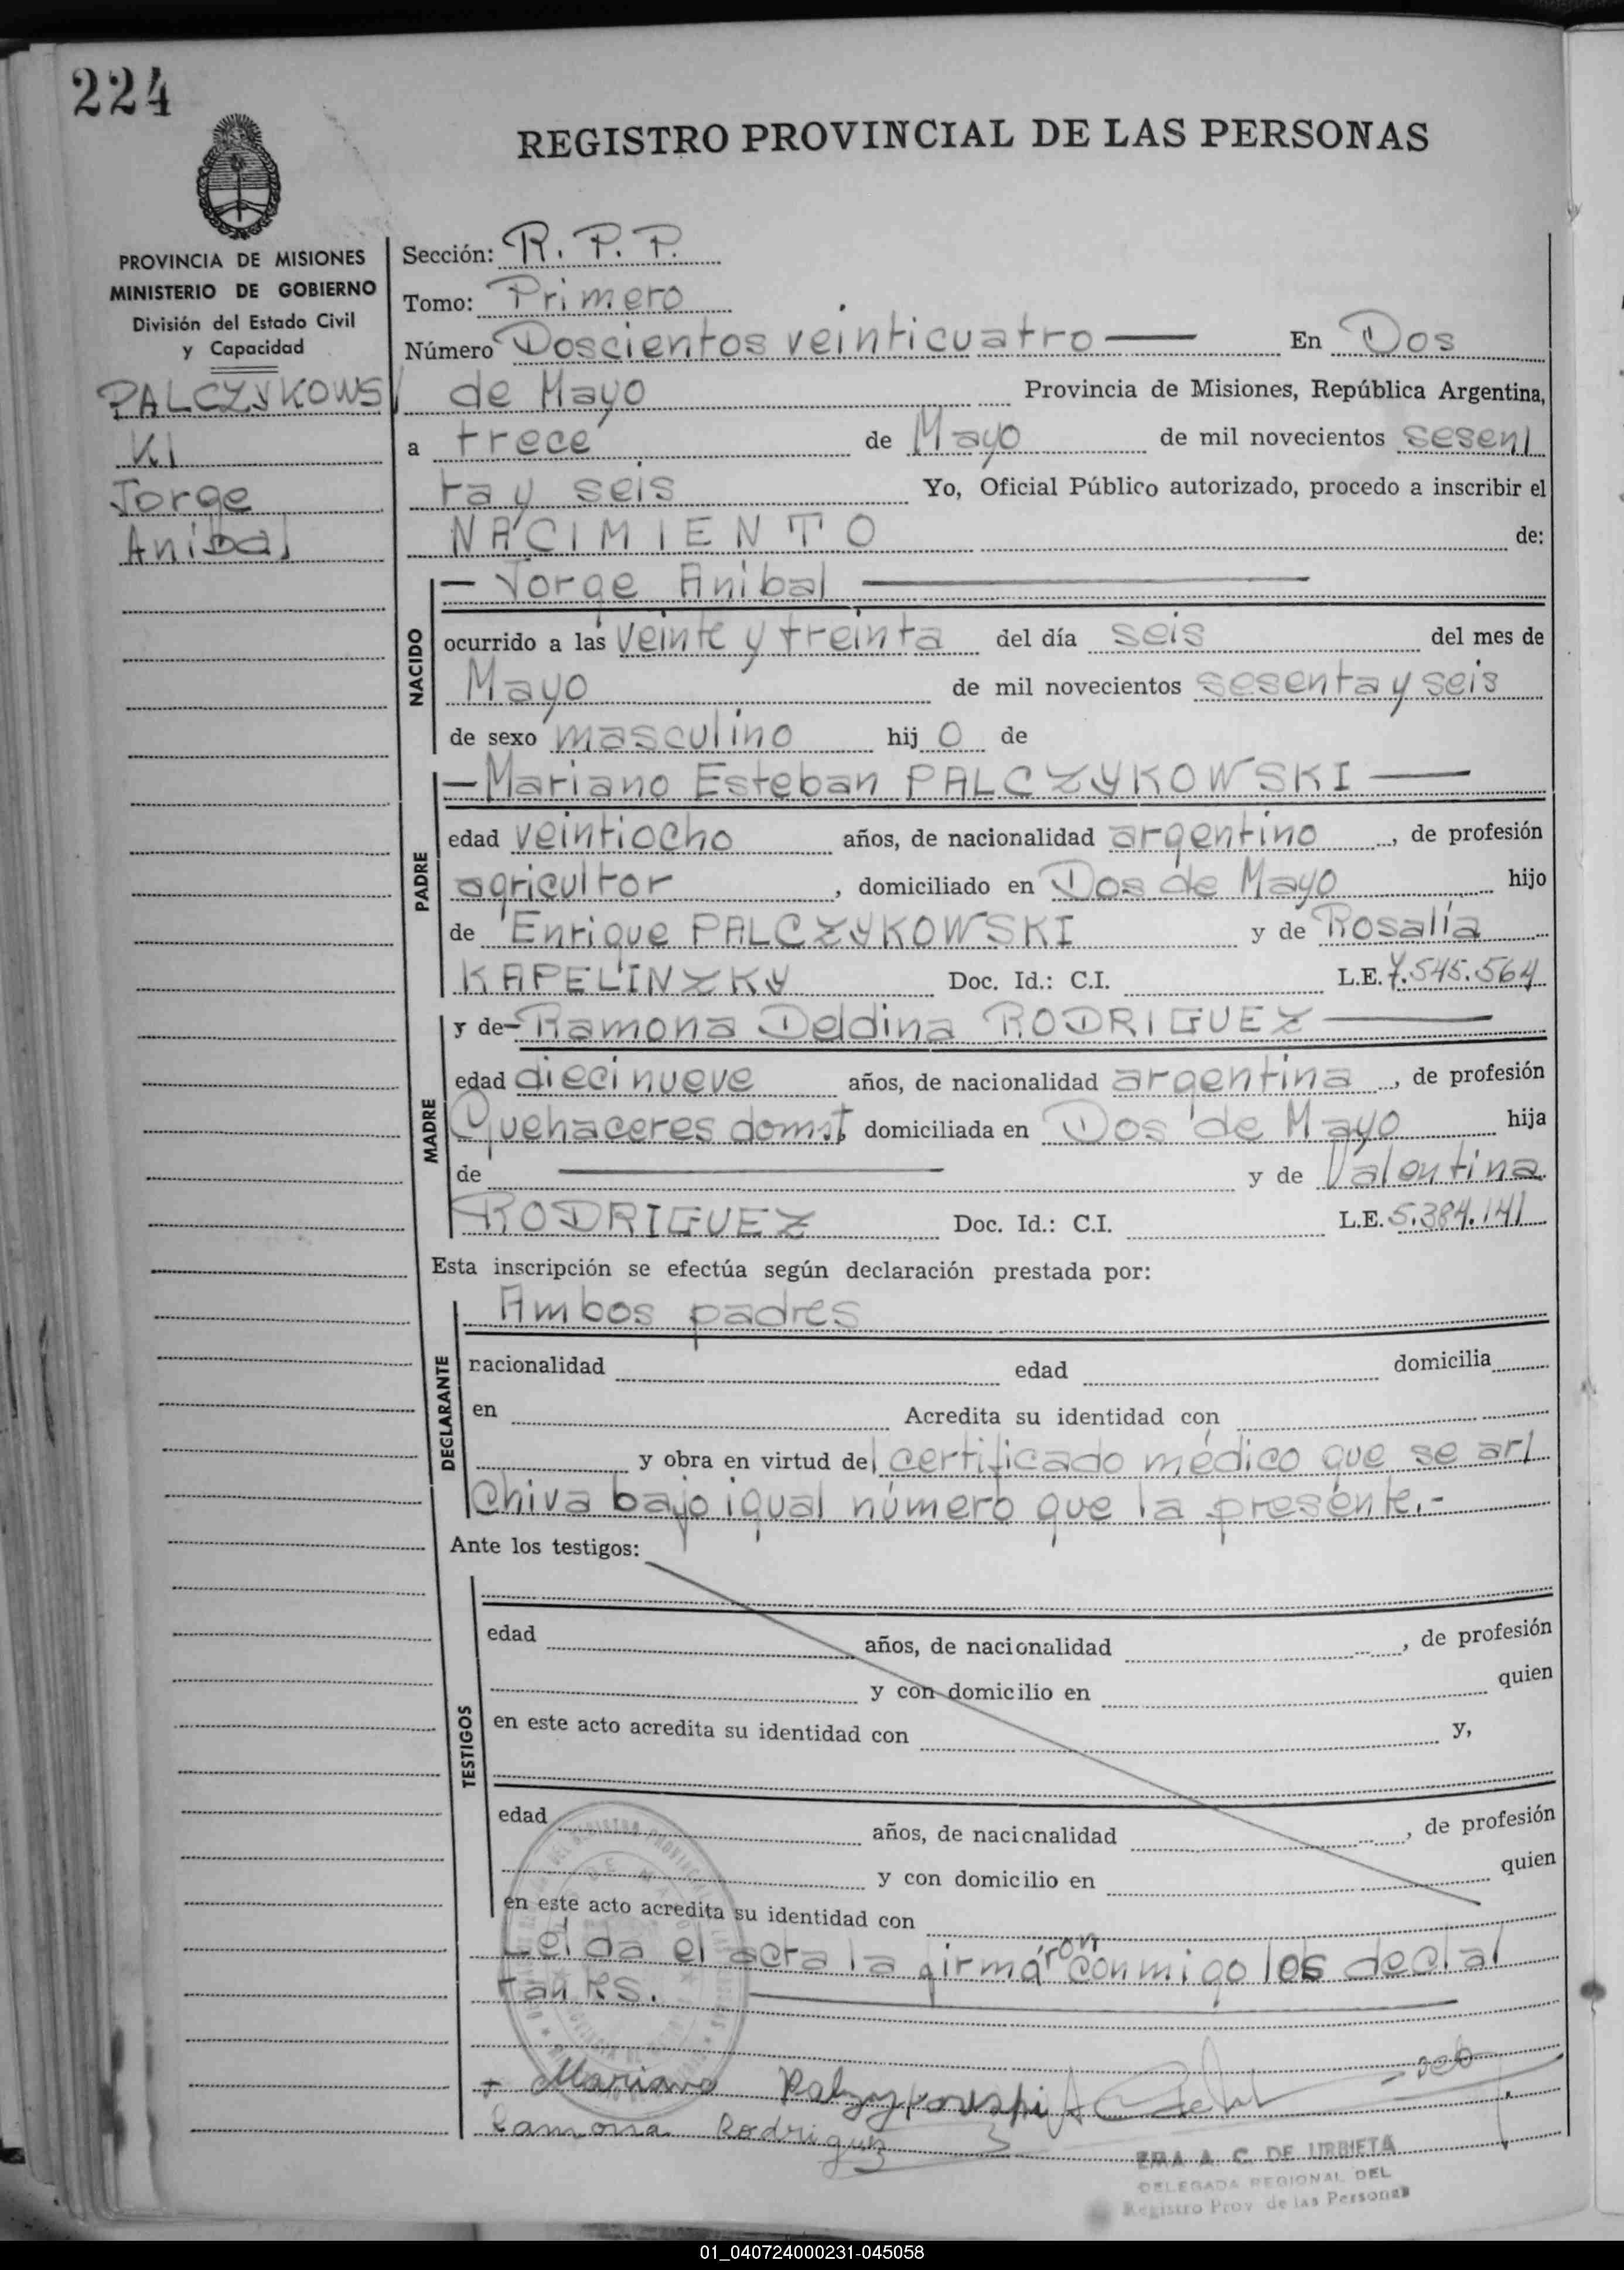 224
REGISTRO PROVINCIAL DE LAS PERSONAS
PROVINCIA DE MISIONES
MINISTERIO DE GOBIERNO
División del Estado Civil
y Capacidad
PALCZYKOWS
KI
Jorge
Anibal
Sección: R. P. P.
Tomo: Primero
Número Doscientos veinticuatro — En Dos
de Mayo Provincia de Misiones, República Argentina,
a trece de Mayo de mil novecientos sesen/
ta y seis Yo, Oficial Público autorizado, procedo a inscribir el
NACIMIENTO de:
NACIDO
— Jorge Anibal —
ocurrido a las veinte y treinta del día seis del mes de
Mayo de mil novecientos sesenta y seis
de sexo masculino hij o de
PADRE
— Mariano Esteban PALCZYKOWSKI —
edad veintiocho años, de nacionalidad argentino, de profesión
agricultor, domiciliado en Dos de Mayo hijo
de Enrique PALCZYKOWSKI y de Rosalía
KAPELINZKY Doc. Id.: C.I. L.E. 7.545.564
MADRE
y de — Ramona Deldina RODRIGUEZ —
edad diecinueve años, de nacionalidad argentina, de profesión
Quehaceres domst. domiciliada en Dos de Mayo hija
de — y de Valentina
RODRIGUEZ Doc. Id.: C.I. L.E. 5.384.141
Esta inscripción se efectúa según declaración prestada por:
DECLARANTE
Ambos padres
nacionalidad edad domicilia
en Acredita su identidad con
y obra en virtud del certificado médico que se ar/
chiva bajo igual número que la presente.-
Ante los testigos:
TESTIGOS
edad años, de nacionalidad , de profesión
y con domicilio en quien
en este acto acredita su identidad con y,
edad años, de nacionalidad , de profesión
y con domicilio en quien
en este acto acredita su identidad con
Leída el acta la firmaron conmigo los decla/
rantes.
+ Mariano Palzoykouspi
Ramona Rodriguez
EMA A. C. DE URBIETA
DELEGADA REGIONAL DEL
Registro Prov de las Personas
01_040724000231-045058